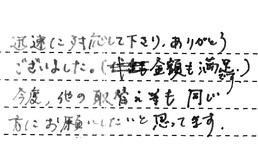 迅速に対応して下さり、ありがとう
ございました。(金額も満足です。)
今度、他の取替え等も同じ
方にお願いしたいと思ってます。